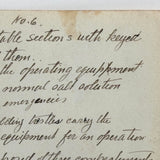 No. 6.
table sections with keyed
them.
the operating equippment
normal salt solution
emergencies
carry the
equipment for an operation